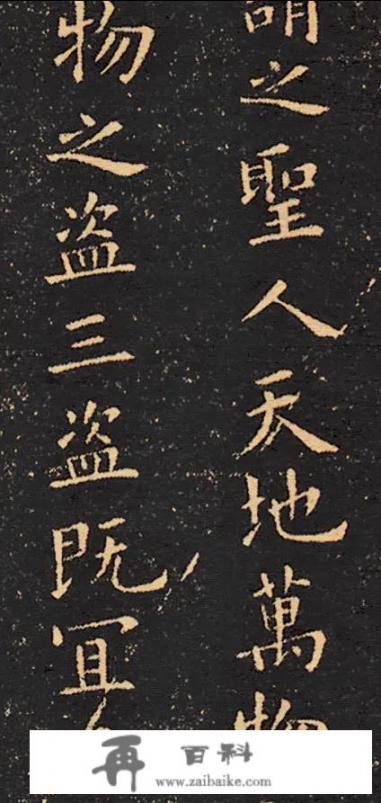 謂之聖人天地萬物
物之盗三盗既宜
再百科
www.zaibaike.com